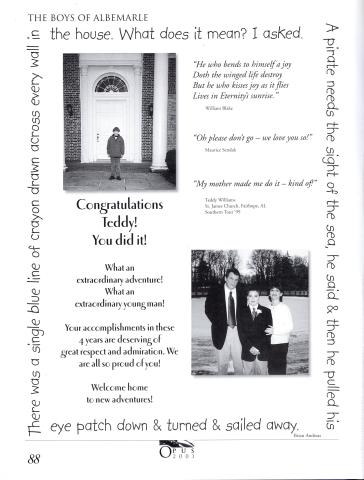 THE BOYS OF ALBEMARLE
There was a single blue line of crayon drawn across every wall in
the house. What does it mean? I asked.
A pirate needs the sight of the sea, he said & then he pulled his
eye patch down & turned & sailed away.
Brian Andreas
"He who bends to himself a joy
Doth the winged life destroy
But he who kisses joy as it flies
Lives in Eternity's sunrise."
William Blake
"Oh please don't go – we love you so!"
Maurice Sendak
"My mother made me do it – kind of!"
Teddy Williams
St. James Church, Fairhope, AL
Southern Tour '99
Congratulations
Teddy!
You did it!
What an
extraordinary adventure!
What an
extraordinary young man!
Your accomplishments in these
4 years are deserving of
great respect and admiration. We
are all so proud of you!
Welcome home
to new adventures!
88
OPUS
2003